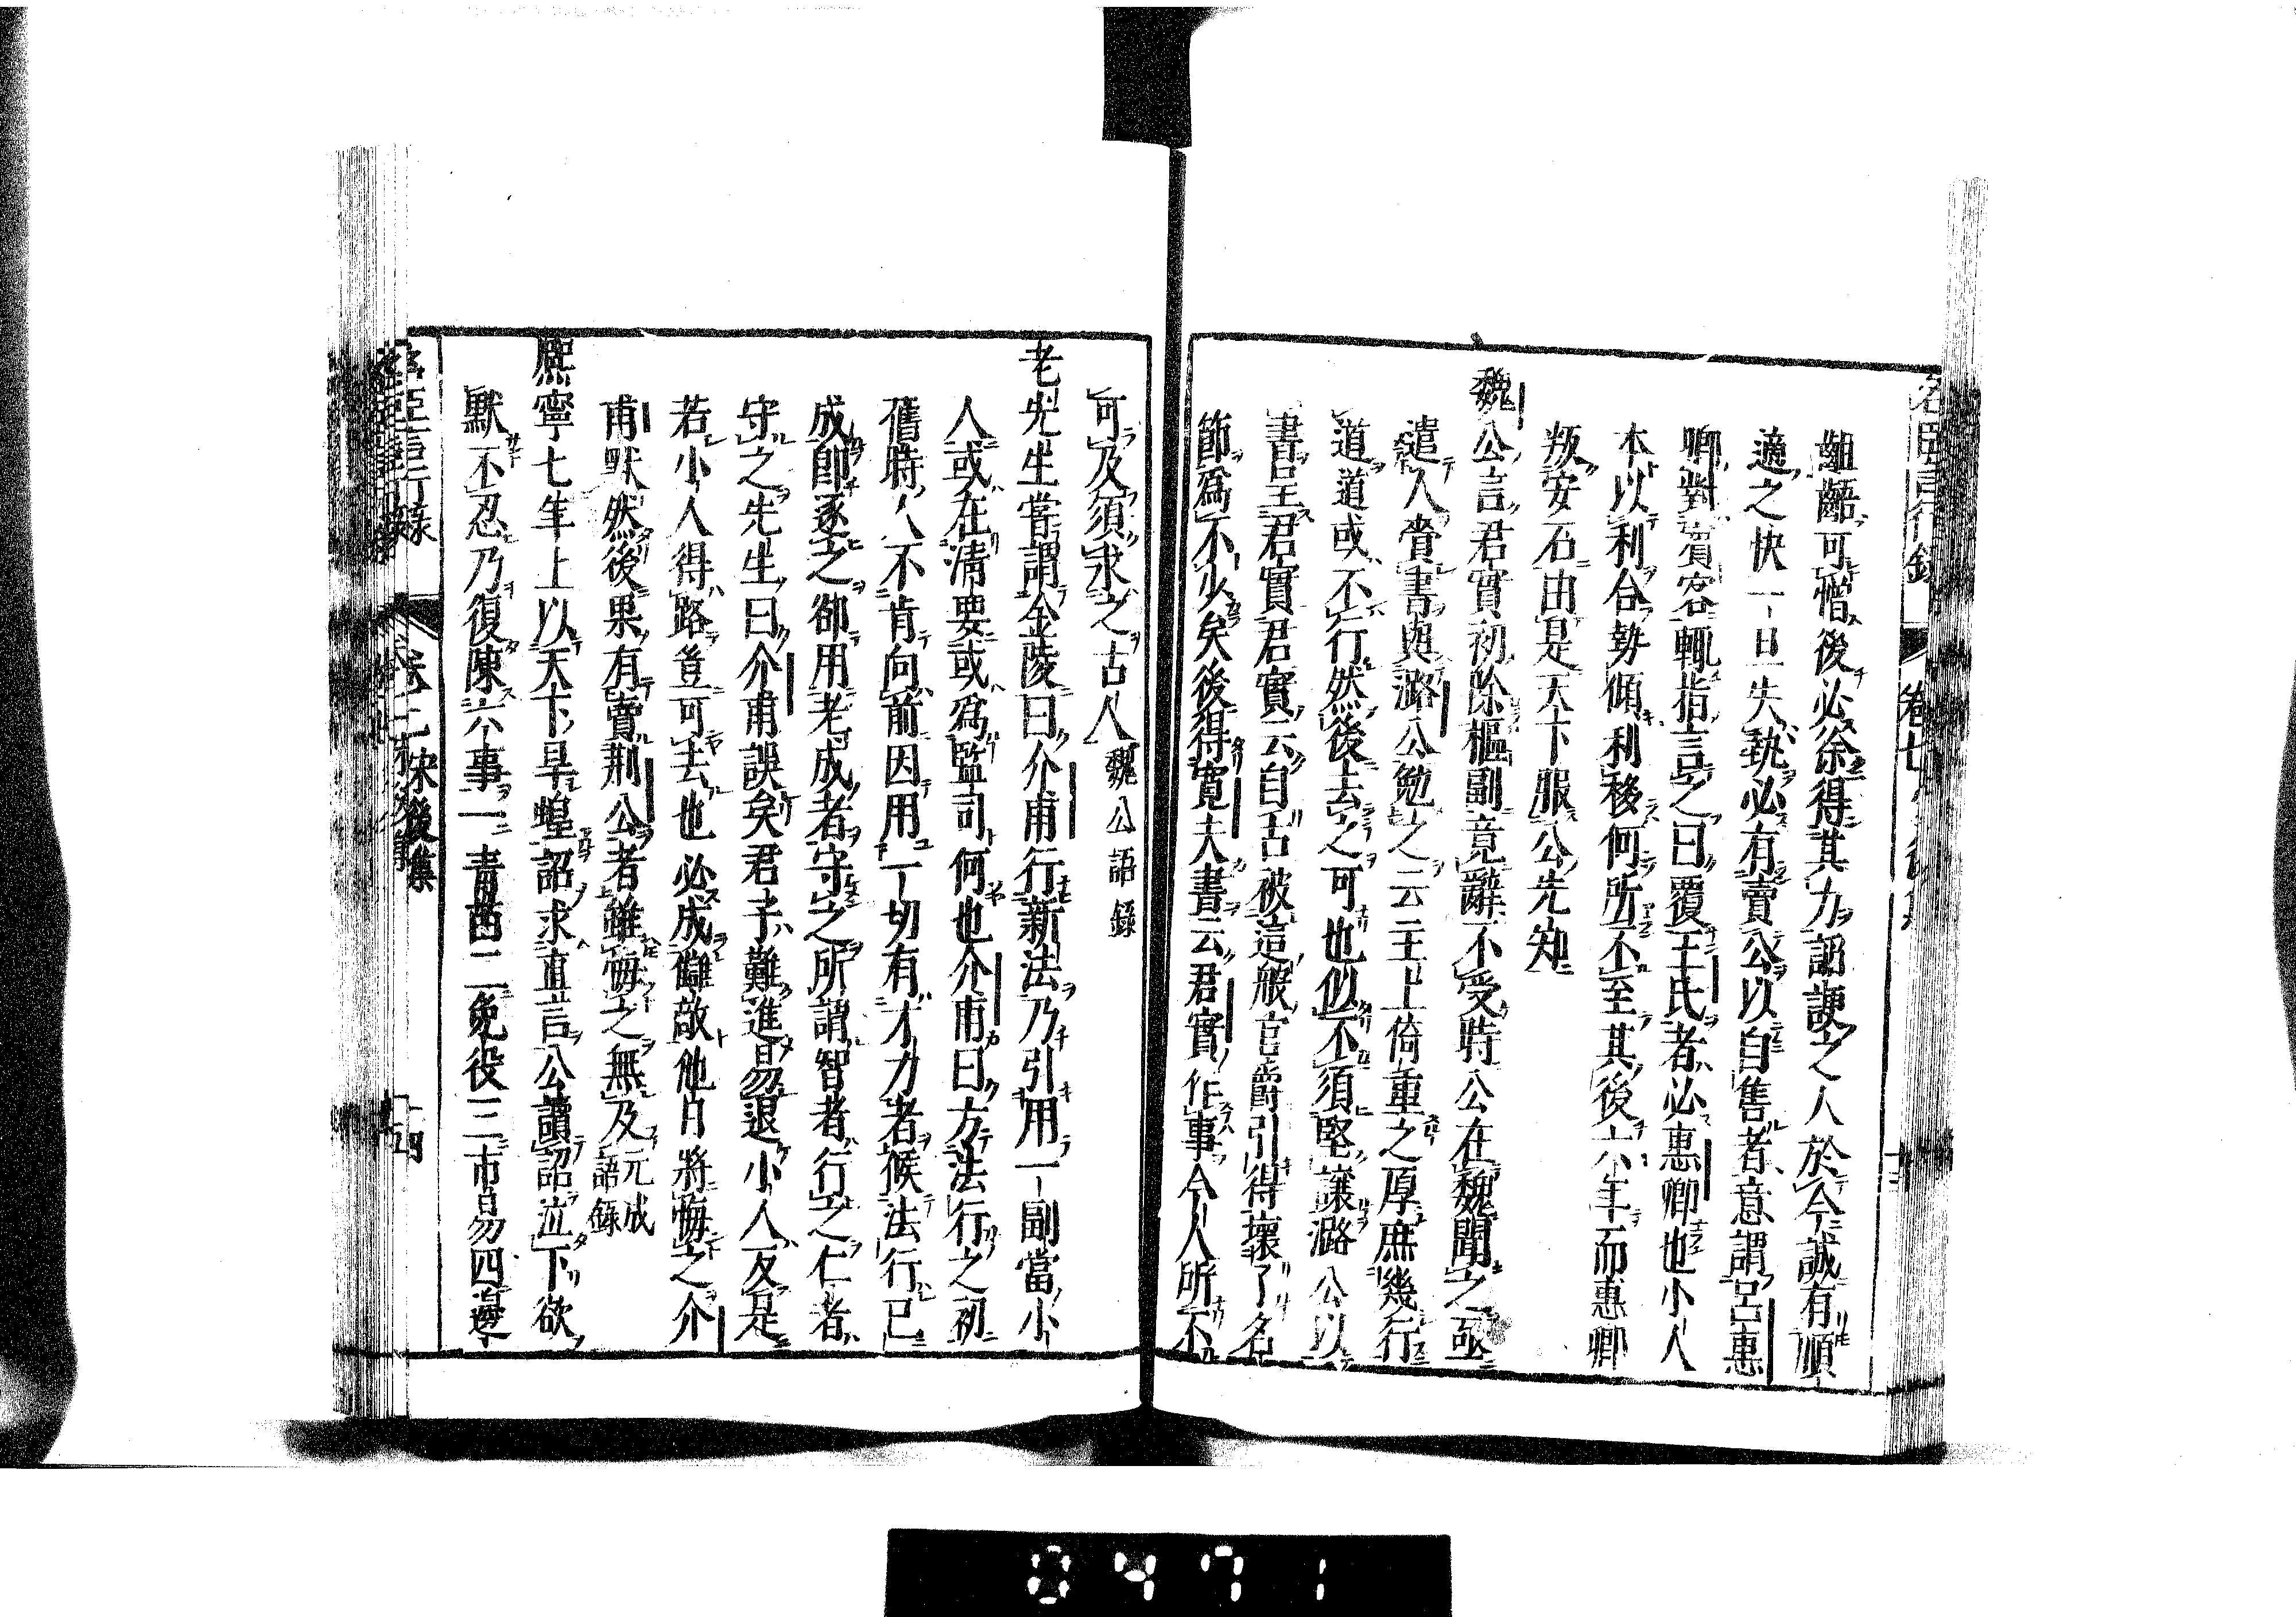 名臣言行錄 卷七
齟齬可憎後必徐得其力諂諛之人於今誠有順
適之快一旦失埶必有賣公以自售者意謂呂惠
卿對賓客輒指言之曰覆王氏者必惠卿也小人
本以利合勢傾利移何所不至其後六年而惠卿
叛安石由是天下服公先知
魏公言君實初除樞副竟辭不受時公在魏聞之亟
遣人賫書與潞公勉之云主上倚重之厚庶幾行
道道或不行然後去之可也似不須堅讓潞公以
書呈君實君實云自古被這般官爵引得壞了名
節爲不少矣後得寬夫書云君實作事今人所不
可及須求之古人魏公語錄
老先生嘗謂金陵曰介甫行新法乃引用一副當小
人或在清要或爲監司何也介甫曰方法行之初
舊時人不肯向前因用一切有才力者候法行已
成卽逐之卻用老成者守之所謂智者行之仁者
守之先生曰介甫誤矣君子難進易退小人反是
若小人得路豈可去也必成讎敵他日將悔之介
甫默然後果有賣荆公者雖悔之無及元成語錄
熈寧七年上以天下旱蝗詔求直言公讀詔泣下欲
默不忍乃復陳六事一青苗二免役三市易四邊
宋後集 十四
0471